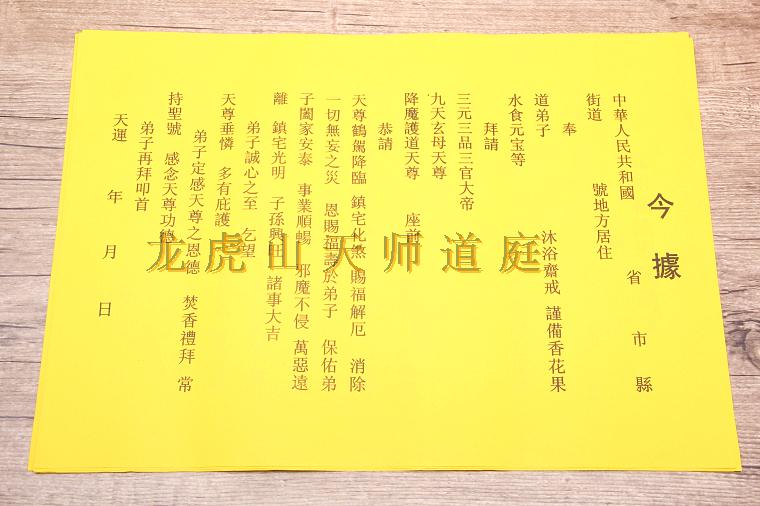 今據
中華人民共和國 省 市 縣
街道 號地方居住
奉
道弟子 沐浴齋戒 謹備香花果
水食元宝等
拜請
三元三品三官大帝
九天玄母天尊
降魔護道天尊 座前
恭請
天尊鶴駕降臨 鎮宅化煞 賜福解厄 消除
一切無妄之災 恩賜福壽於弟子 保佑弟
子闔家安泰 事業順暢 邪魔不侵 萬惡遠
離 鎮宅光明 子孫興旺 諸事大吉
弟子誠心之至 乞望
天尊垂憐 多有庇護
弟子定感天尊之恩德 焚香禮拜 常
持聖號 感念天尊功德
弟子再拜叩首
天運 年 月 日
龙虎山天师道庭